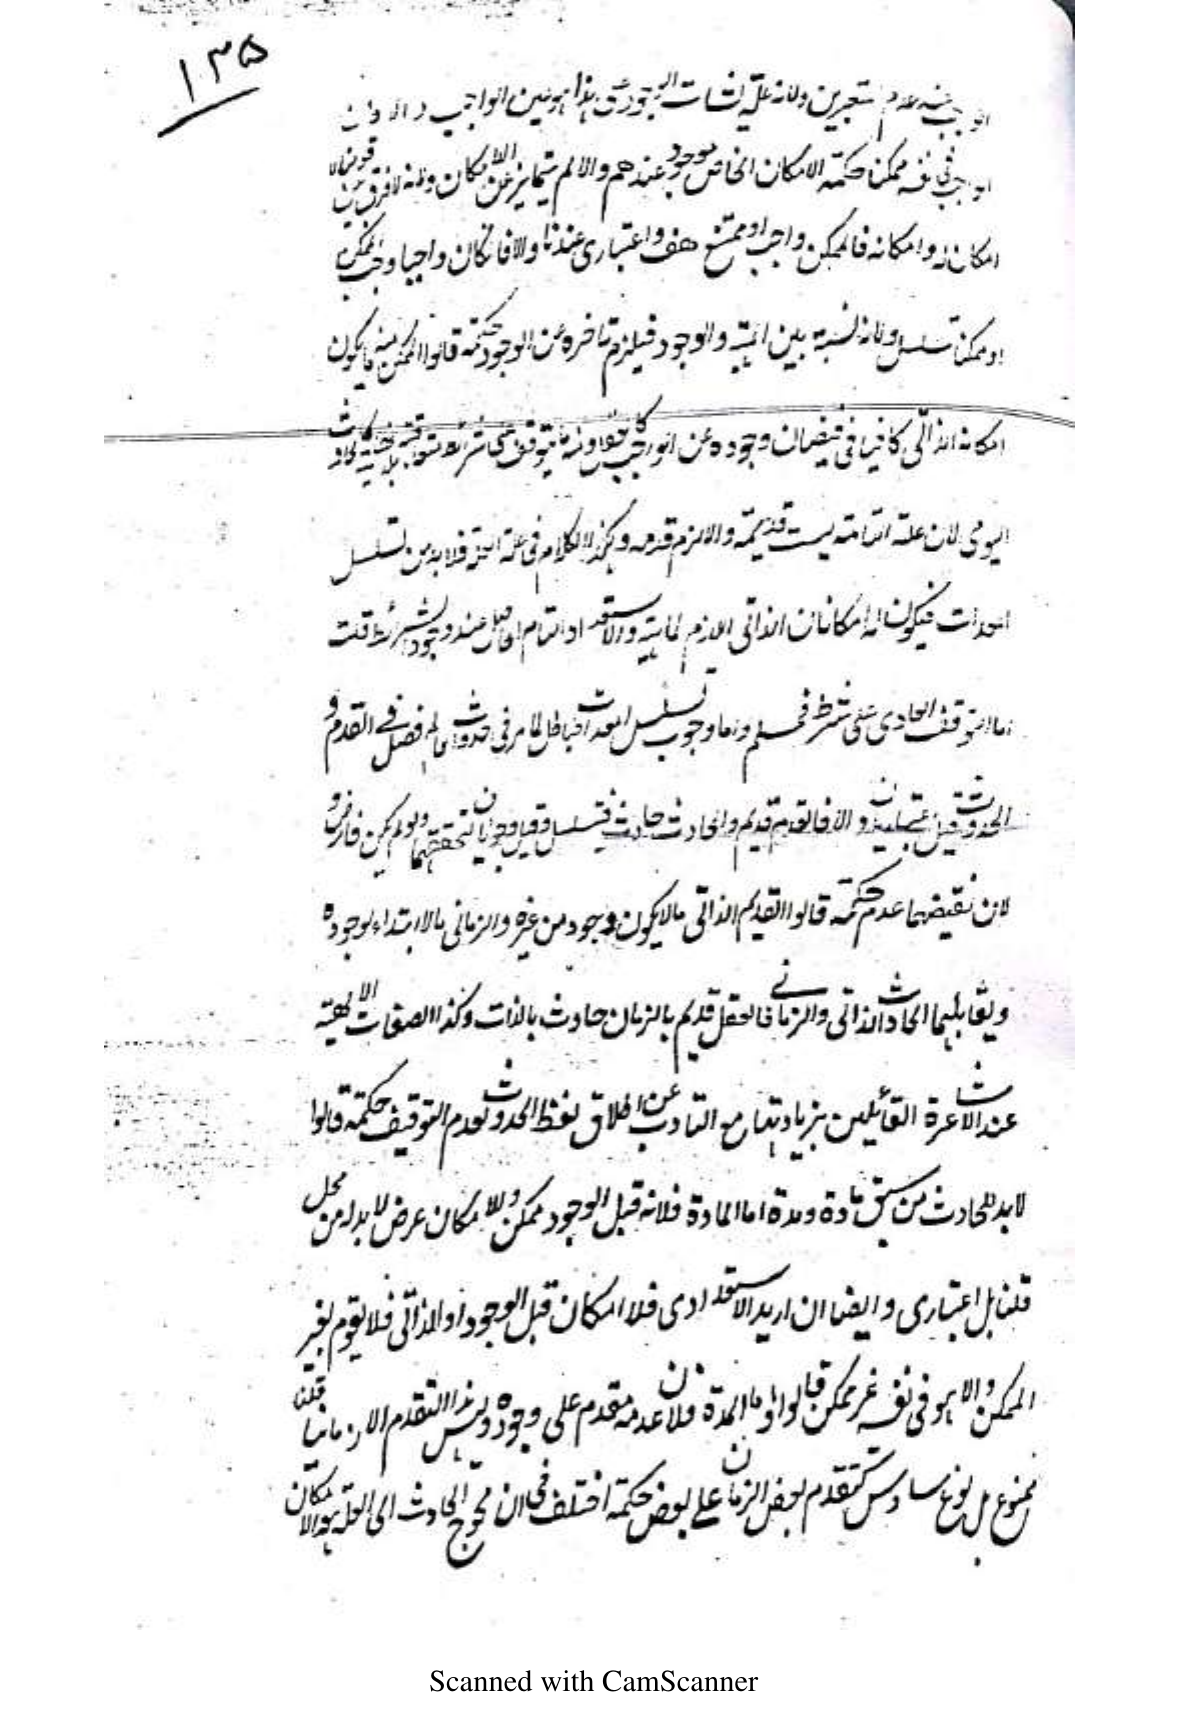 ١٣٥
الواجب عدم ولانه علة الواجب
الواجب في نفسه ممكنا حكمة الامكان الخاص موجود عندهم والا لم يتمايز عن الامكان ولانه لا فرق بين قولنا لا
امكان له وامكانه فالممكن واجب او ممتنع هف واعتباري عندنا والا فان كان واجبا وجب الممكن
او ممكنا تسلسل ولانه نسبة بين المهية والوجود فيلزم تاخره عن الوجود حكمة قالوا الممكن منه ما يكون
امكانه الذاتي كافيا في فيضان وجوده عن الواجب ومنه ما يتوقف على شرائط كالحادث
اليومي لان علته التامة ليست قديمة والا لزم قدمه وهكذا الكلام في علة العلة فلا بد من تسلسل
المعدات فيكون له امكانان الذاتي اللازم لماهيته والاستعدادي التام الحاصل عند وجود الشرائط قلت
اما توقف الحادث على شرط فمسلم واما وجوب تسلسل المعدات فباطل لما مر في حدوث العالم فصل في القدم و
الحدوث قيل اعتباريان والا فالقدم قديم والحادث حادث فيتسلسل وقيل وجوديان لتحققهما ولو لم يكن فارض و
لان نقيضهما عدم حكمة قالوا القديم الذاتي ما لا يكون وجوده من غيره والزماني ما لا ابتداء لوجوده
ويقابلهما الحادث الذاتي والزماني فالعقل قديم بالزمان حادث بالذات وكذا الصفات الالهية
عند الاشاعرة القائلين بزيادتها مع التادب عن اطلاق لفظ الحدوث لعدم التوقيف حكمة قالوا
لا بد للحادث من سبق مادة ومدة اما المادة فلانه قبل الوجود ممكن والامكان عرض لا بد له من محل
قلنا بل اعتباري وايضا ان اريد الاستعدادي فلا امكان قبل الوجود او الذاتي فلا يقوم بغير
الممكن والا هو في نفسه غير ممكن قالوا واما المدة فلان عدمه مقدم على وجوده وليس هذا التقدم الا زمانيا قلنا
ممنوع بل نوع سادس كتقدم بعض الزمان على بعض حكمة اختلف في ان محوج الحادث الى العلة هو الامكان
Scanned with CamScanner